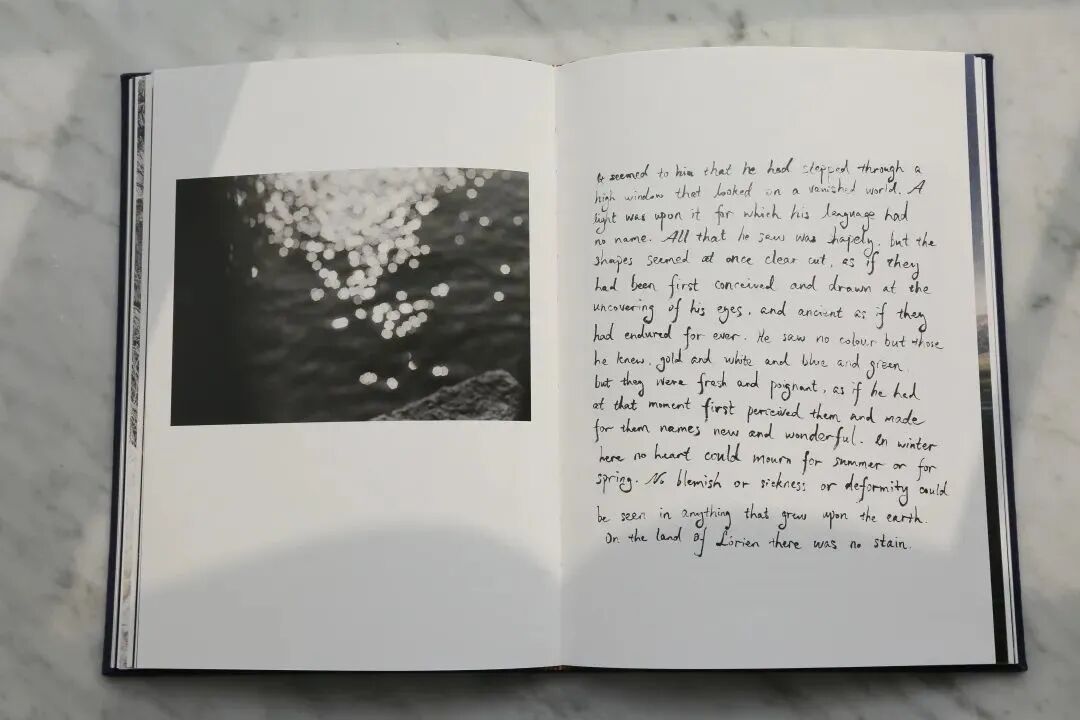 It seemed to him that he had stepped through a
high window that looked on a vanished world. A
light was upon it for which his language had
no name. All that he saw was shapely, but the
shapes seemed at once clear cut, as if they
had been first conceived and drawn at the
uncovering of his eyes, and ancient as if they
had endured for ever. He saw no colour but those
he knew, gold and white and blue and green,
but they were fresh and poignant, as if he had
at that moment first perceived them and made
for them names new and wonderful. In winter
here no heart could mourn for summer or for
spring. No blemish or sickness or deformity could
be seen in anything that grew upon the earth.
On the land of Lórien there was no stain.